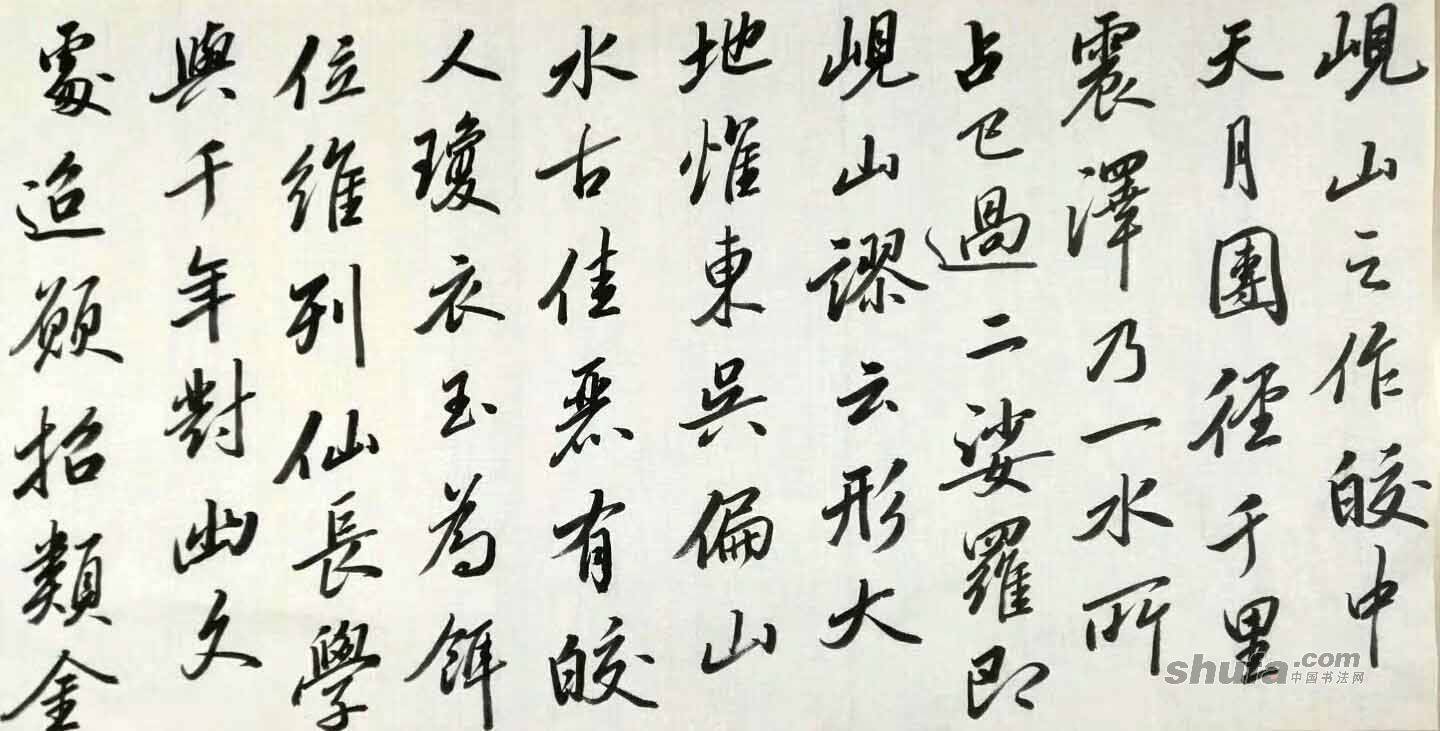 峴山之作皎中
天月團徑千里
震澤乃一水所
占已過二娑羅即
峴山謬云形大
地惟東吳偏山
水古佳有皎
人瓊衣玉為餌
位維列仙長學
與千年對幽久
處迢願招類金
shufa.com
中国书法网